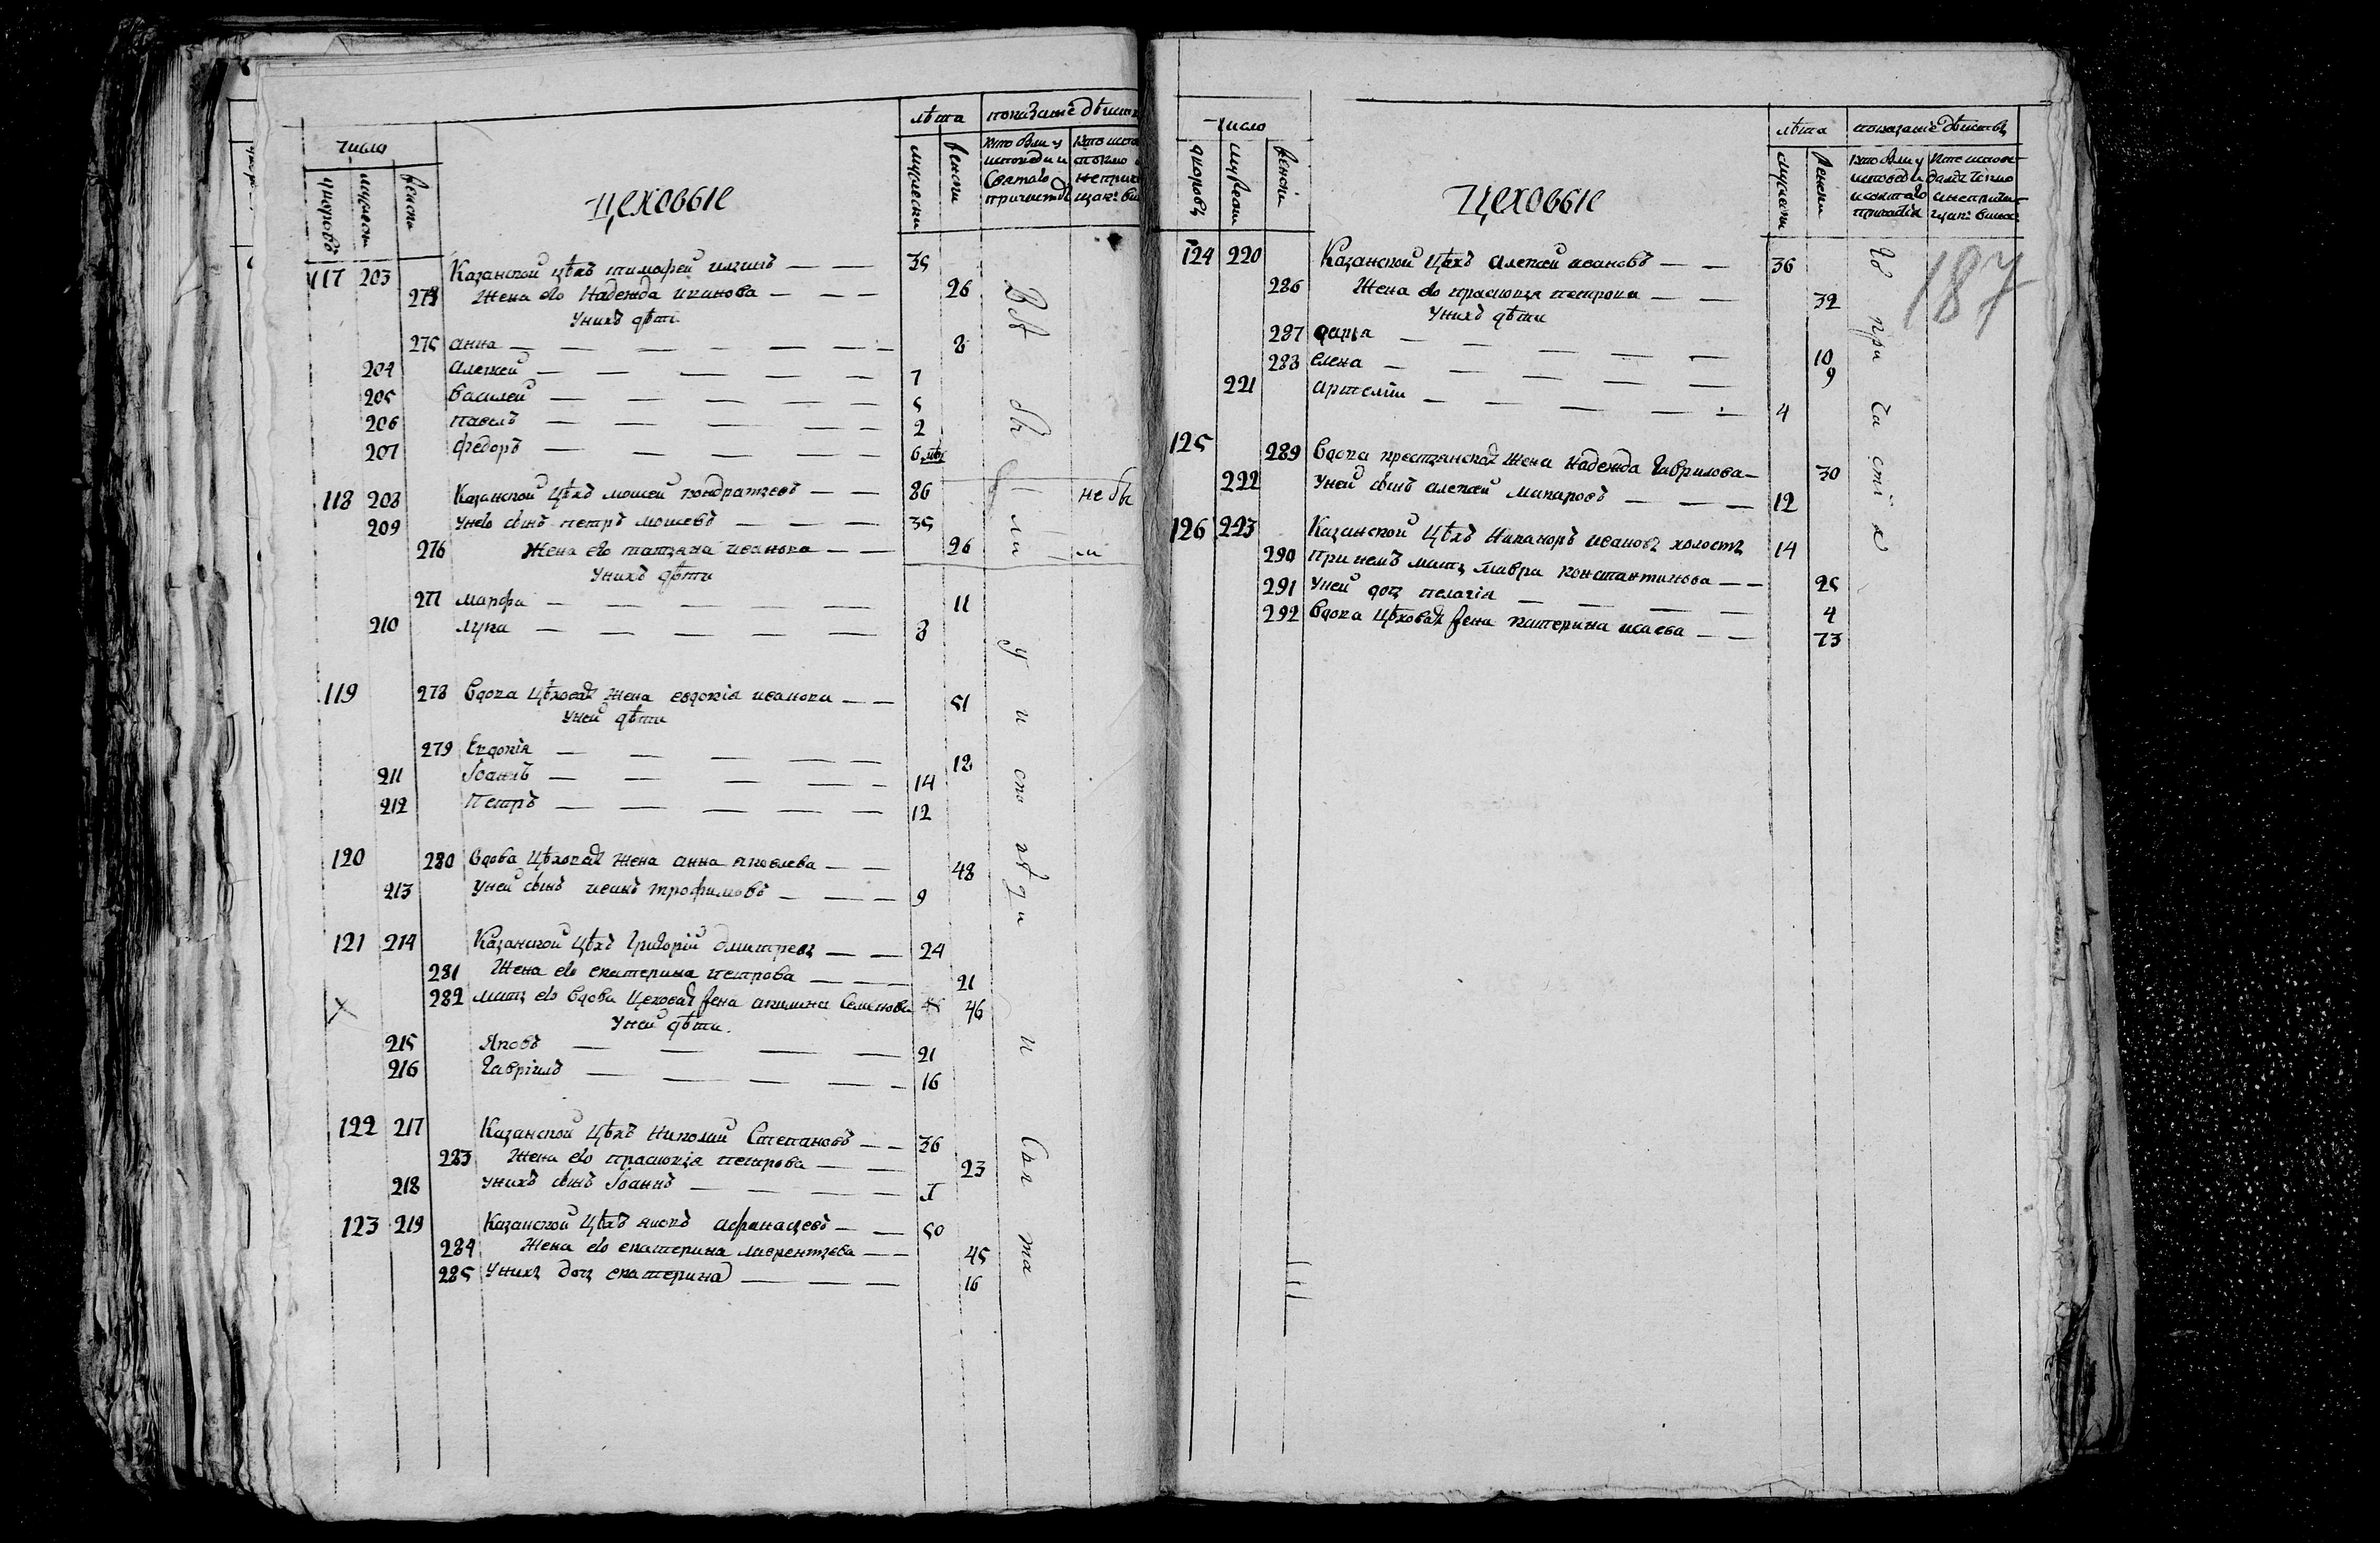 число
дворовъ
мужеск
женски
цеховые
лѣта
мужески
женски
показание дѣист
кто были у
исповеди и
святаго
причастія
117 203 Казанской цѣхъ тимофеи ильинъ 35
274 жена его Надежда иванова 26
Унихъ дѣти
275 анна 8
204 алексѣй 7
205 василей 5
206 павелъ 2
207 федоръ 6 мѣс
118 208 Казанской цѣхъ мосеи кондратьевъ 86
не бы
209 унево сынъ петръ мосѣевъ 35
276 жена его татьяна иванова 26
ли
Унихъ дѣти
277 марфа 11
210 лука 8
119 278 вдова цѣховая жена евдокія иванова 51
Уней дѣти
279 Евдокія 18
211 Іоаннъ 14
212 Петръ 12
120 280 вдова цѣховая жена анна яковлева 48
213 уней сынъ иванъ трофимовъ 9
121 214 Казанской цѣхъ григорій дмитревъ 24
281 жена его екатерина петрова 21
282 мать его вдова цеховая жена акилина Семенова 46
Уней дѣти.
215 Яковъ 21
216 Гавріилъ 16
122 217 Казанской цѣхъ николай Степановъ 36
283 жена его прасковья петрова 23
218 унихъ сынъ Іоаннъ
123 219 Казанской цѣхъ яковъ афанасьевъ 50
284 жена его екатерина лаврентьева 45
285 унихъ дочь екатерина 16
Всѣ были у исповѣди и свята
число
дворовъ
мужеск
женски
цеховые
лѣта
мужески
женски
показаніе дѣиствъ
кто были у
исповеди
и святаго
причастія
187
124 220 Казанской цѣхъ алексѣй ивановъ 36
286 жена его прасковья петрова 32
Унихъ дѣти
287 дарья 10
288 елена 9
221 артемій 4
125 289 вдова крестьянская жена надежда гаврилова 30
222 уней сынъ алексѣй макаровъ 12
126 223 Казанской цѣхъ Никаноръ ивановъ холостъ 14
290 При немъ мать мавра константинова 25
291 уней дочь пелагія 4
292 вдова цѣховая жена катерина исаева 73
го причастія